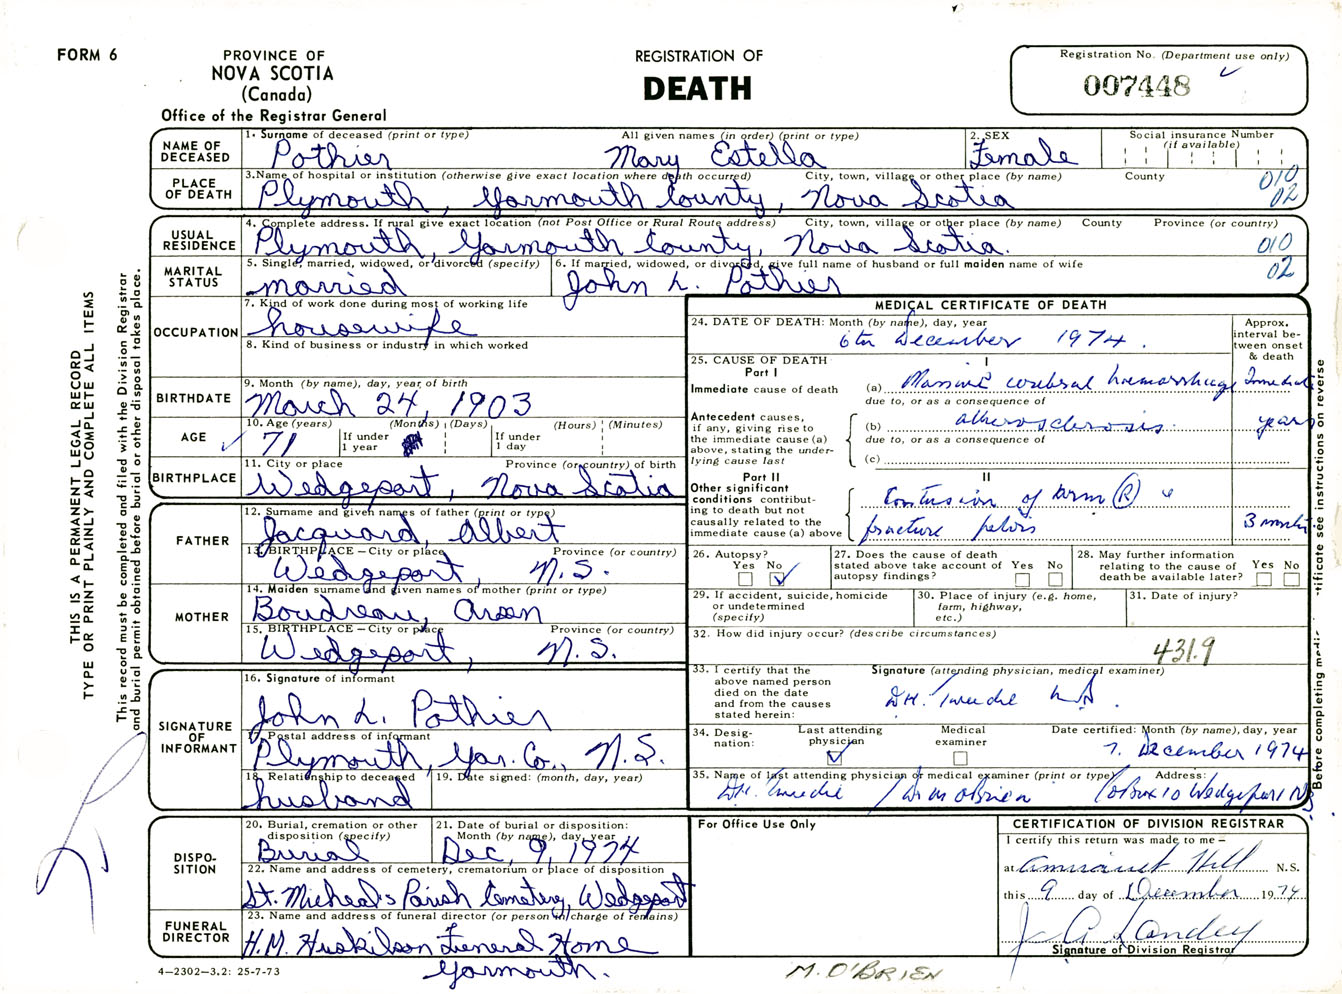 FORM 6
PROVINCE OF
NOVA SCOTIA
(Canada)
Office of the Registrar General
REGISTRATION OF
DEATH
Registration No. (Department use only)
007448
THIS IS A PERMANENT LEGAL RECORD
TYPE OR PRINT PLAINLY AND COMPLETE ALL ITEMS
This record must be completed and filed with the Division Registrar
and burial permit obtained before burial or other disposal takes place.
NAME OF
DECEASED
1. Surname of deceased (print or type) All given names (in order) (print or type)
Pothier Mary Estella
2. SEX
Female
Social insurance Number
(if available)
PLACE
OF DEATH
3. Name of hospital or institution (otherwise give exact location where death occurred) City, town, village or other place (by name) County
Plymouth, Yarmouth County, Nova Scotia
010
02
USUAL
RESIDENCE
4. Complete address. If rural give exact location (not Post Office or Rural Route address) City, town, village or other place (by name) County Province (or country)
Plymouth, Yarmouth County, Nova Scotia.
010
02
MARITAL
STATUS
5. Single, married, widowed, or divorced (specify)
married
6. If married, widowed, or divorced, give full name of husband or full maiden name of wife
John L. Pothier
OCCUPATION
7. Kind of work done during most of working life
housewife
8. Kind of business or industry in which worked
BIRTHDATE
9. Month (by name), day, year of birth
March 24, 1903
AGE
10. Age (years) (Months) (Days) (Hours) (Minutes)
71
If under
1 year
If under
1 day
BIRTHPLACE
11. City or place Province (or country) of birth
Wedgeport, Nova Scotia
FATHER
12. Surname and given names of father (print or type)
Jacquard, Albert
13. BIRTHPLACE – City or place Province (or country)
Wedgeport, N.S.
MOTHER
14. Maiden surname and given names of mother (print or type)
Boudreau, Arsen
15. BIRTHPLACE – City or place Province (or country)
Wedgeport, N.S.
SIGNATURE
OF
INFORMANT
16. Signature of informant
John L. Pothier
Postal address of informant
Plymouth, Yar. Co., N.S.
18. Relationship to deceased
husband
19. Date signed: (month, day, year)
MEDICAL CERTIFICATE OF DEATH
24. DATE OF DEATH: Month (by name), day, year
6th December 1974.
Approx.
interval be-
tween onset
& death
25. CAUSE OF DEATH
Part I
I
Immediate cause of death
(a) Massive cerebral haemorrhage
due to, or as a consequence of
Antecedent causes,
if any, giving rise to
the immediate cause (a)
above, stating the under-
lying cause last
(b) atherosclerosis years
due to, or as a consequence of
(c)
Part II
II
Other significant
conditions contribut-
ing to death but not
causally related to the
immediate cause (a) above
Contusion of arm (R)
fracture pelvis 3 months
26. Autopsy?
Yes No
27. Does the cause of death
stated above take account of
autopsy findings?
Yes No
28. May further information
relating to the cause of
death be available later?
Yes No
29. If accident, suicide, homicide
or undetermined
(specify)
30. Place of injury (e.g. home,
farm, highway,
etc.)
31. Date of injury?
32. How did injury occur? (describe circumstances)
431.9
33. I certify that the
above named person
died on the date
and from the causes
stated herein:
Signature (attending physician, medical examiner)
D.H. Tweedie M.D.
34. Desig-
nation:
Last attending
physician
Medical
examiner
Date certified: Month (by name), day, year
7. December 1974
35. Name of last attending physician or medical examiner (print or type) Address:
D.H. Tweedie / Dr M O'Brien Box 10 Wedgeport N.S.
Before completing
tificate see instructions on reverse
DISPO-
SITION
20. Burial, cremation or other
disposition (specify)
Burial
21. Date of burial or disposition:
Month (by name), day, year
Dec, 9, 1974
22. Name and address of cemetery, crematorium or place of disposition
St. Micheal's Parish Cemetery, Wedgeport
FUNERAL
DIRECTOR
23. Name and address of funeral director (or person in charge of remains)
H.M. Huskilson Funeral Home
Yarmouth.
For Office Use Only
CERTIFICATION OF DIVISION REGISTRAR
I certify this return was made to me –
at Amirault Hill N.S.
this 9 day of December 1974
Signature of Division Registrar
4–2302–3.2: 25-7-73
M. O'BRIEN